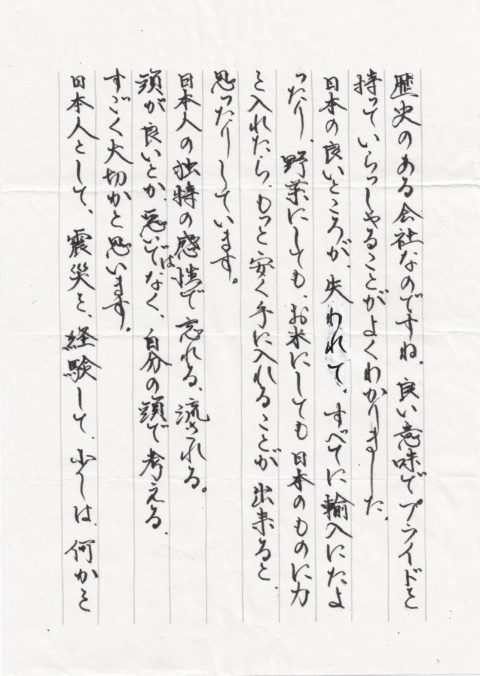 歴史のある会社なのですね。良い意味でプライドを
持っていらっしゃることがよくわかりました。
日本の良いところが、失われて。すべてに輸入にたよ
ったり、野菜にしても、お米にしても日本のものに力
を入れたら、もっと安く手に入れることが出来ると、
思ったりしています。
日本人の独特の感情で忘れる、流される。
頭が良いとか、悪いではなく、自分の頭で考える、
すごく大切かと思います。
日本人として、震災を、経験して、少しは、何かを